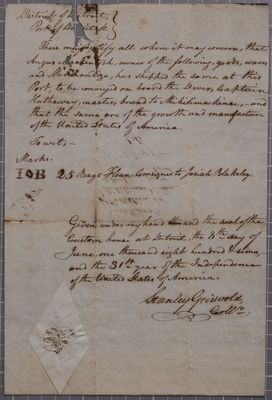 District of Detroit,
Port of Detroit.
These may certify all whom it may concern, that
Angus Mackintosh, owner of the following, goods, wares
and Merchandize, has shipped the same at this
Port, to be conveyed on board the Dover, Captain
Hathaway, master, bound to Michilimackinac, and
that the same are of the growth and manufacture
of the United States of America.
To wit,
Marks.
IOB 25 Bags Flour. Consigned to Josiah Blakeley.
Given under my hand and the seal of the
Custom house at Detroit, the 8th day of
June, one thousand eight hundred & seven,
and the 31st year of the Independence
of the United States of America.
Stanley Griswold,
Collr.